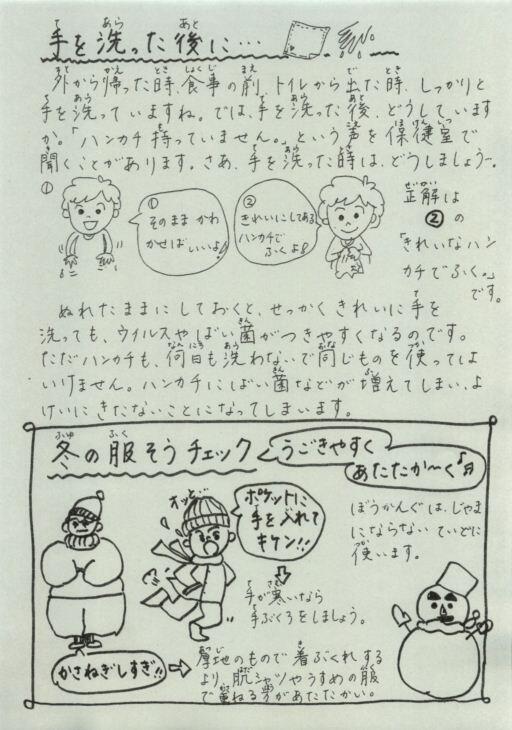 手を洗った後に…
外から帰った時、食事の前、トイレから出た時、しっかりと
手を洗っていますね。では、手を洗った後、どうしています
か。「ハンカチ持っていません。」という声を保健室で
聞くことがあります。さあ、手を洗った時は、どうしましょう。
①
①
そのまま かわ
かせば いいよ!
②
きれいにしてある
ハンカチで
ふくよ!
正解は
②の
「きれいなハン
カチでふく。」
です。
ぬれたままに しておくと、せっかく きれいに 手を
洗っても、ウイルスや ばい菌が つきやすくなるのです。
ただハンカチも、何日も洗わないで同じものを使っては
いけません。ハンカチに ばい菌などが増えてしまい、よ
けいに きたないことに なってしまいます。
冬の服そうチェック
うごきやすく
あたたか〜く♪
オッと…
ポケットに
手を入れて
キケン!!
ぼうかんぐは、じゃま
にならない ていどに
使います。
手が寒いなら
手ぶくろをしましょう。
かさねぎしすぎ!!
厚地のもので 着ぶくれする
より、肌シャツや うすめの服
で重ねる方が あたたかい。